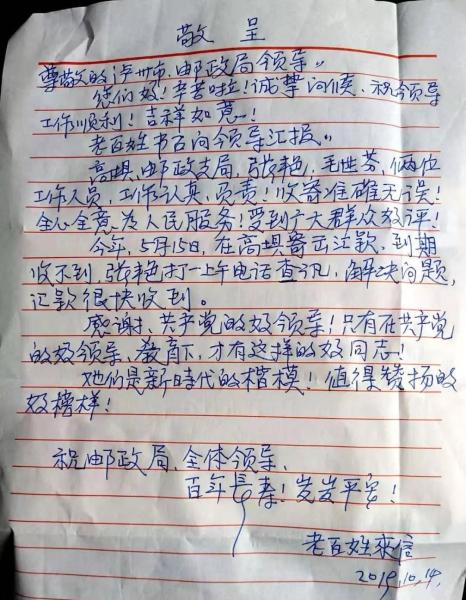 敬呈
尊敬的泸州市、邮政局领导。
您们好！辛苦啦！诚挚问候、祝领导
工作顺利！吉祥如意！
老百姓书面向领导汇报。
高坝、邮政支局，张艳，毛世芬，俩位
工作人员，工作认真，负责！收寄准确无误！
全心全意为人民服务！受到广大群众好评！
今年，5月15日，在高坝寄出汇款，到期
收不到，张艳打一上午电话查讯，解决问题，
汇款很快收到。
感谢、共产党的好领导！只有在共产党
的好领导、教育下，才有这样的好同志！
她们是新時代的楷模！值得赞扬的
好榜样！
祝邮政局、全体领导、
百年長寿！岁岁平安！
老百姓來信
2019.10.14.